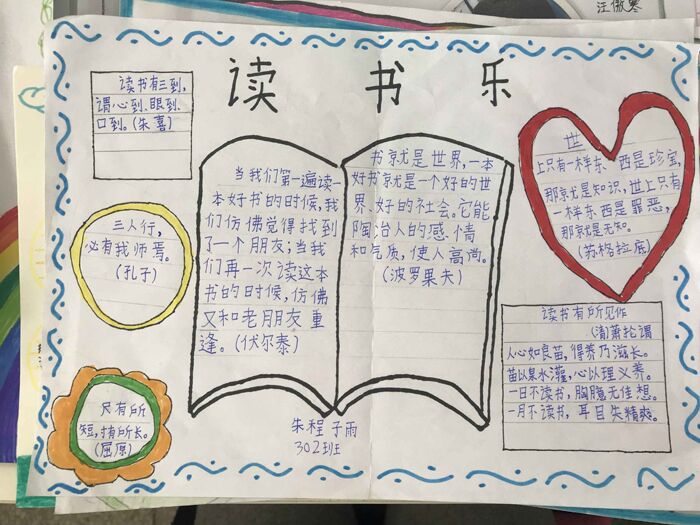 汪傲寒
读书乐
读书有三到,
谓心到、眼到、
口到。(朱喜)
三人行,
必有我师焉。
(孔子)
尺有所
短,寸有所长。
(屈原)
当我们第一遍读一
本好书的时候,我
们仿佛觉得找到
了一个朋友;当我
们再一次读这本
书的时候,仿佛
又和老朋友重
逢。(伏尔泰)
书就是世界,一本
好书就是一个好的世
界、好的社会。它能
陶冶人的感、情
和气质,使人高尚。
(波罗果夫)
世
上只有一样东、西是珍宝,
那就是知识,世上只有
一样东、西是罪恶,
那就是无知。
(苏格拉底)
读书有所见作
(清)萧抡谓
人心如良苗,得养乃滋长。
苗以泉水灌,心以理义养。
一日不读书,胸臆无佳想。
一月不读书,耳目失精爽。
朱程子雨
302班